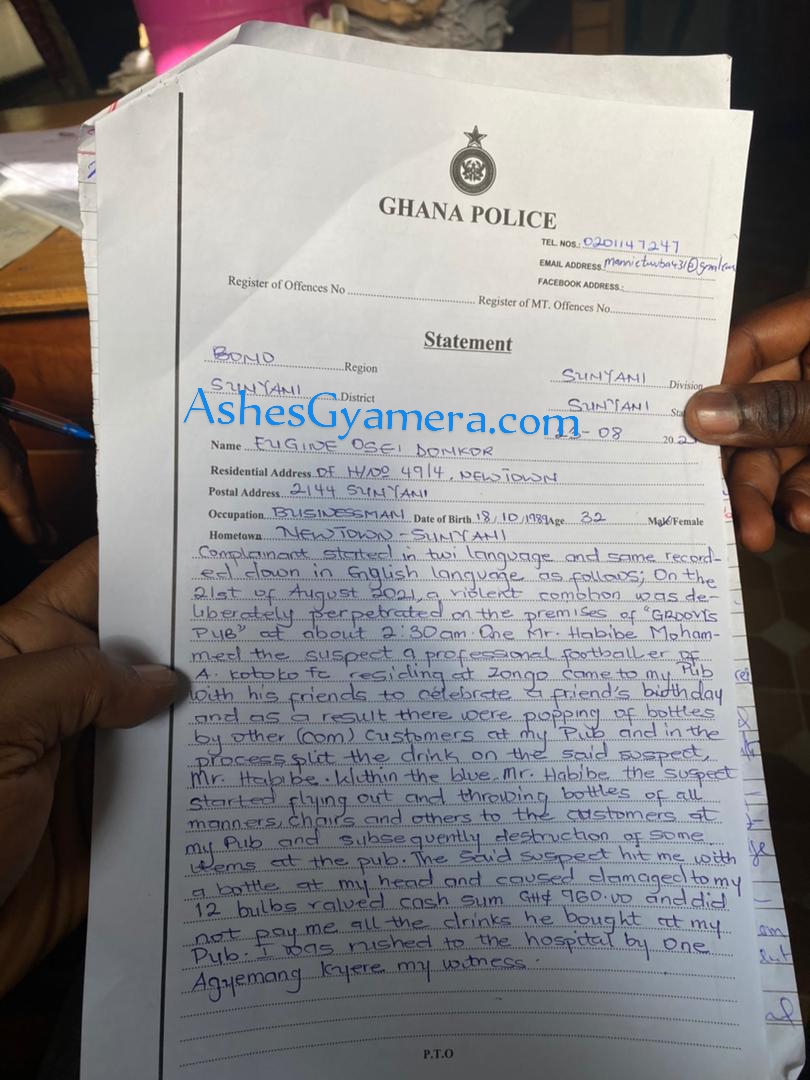 GHANA POLICE
TEL. NOS.: 0201147247
EMAIL ADDRESS.
FACEBOOK ADDRESS.:
Register of Offences No
Register of MT. Offences No.
Statement
BONO Region
SUNYANI Division
SUNYANI District
SUNYANI Sta
AshesGyamera.com
-08 20
Name EUGINE OSEI DONKOR
Residential Address OF H/NO 49/4, NEWTOWN
Postal Address 2144 SUNYANI
Occupation BUSINESSMAN Date of Birth 18, 10, 1989 Age 32 Male/Female
Hometown NEWTOWN - SUNYANI
Complainant stated in twi language and same record-
ed down in English language as follows; On the
21st of August 2021, a violent was de-
liberately perpetrated on the premises of "GROOVIS
PUB" at about 2:30am. One Mr. Habibe Moham-
med the suspect a professional footballer of
A. Kotoko fc residing at Zongo came to my Pub
with his friends to celebrate a friend's birthday
and as a result there were popping of bottles
by other (com) customers at my Pub and in the
process split the drink on the said suspect,
Mr. Habibe. Within the blue, Mr. Habibe the suspect
started flying out and throwing bottles of all
manners, chairs and others to the customers at
my Pub and subsequently destruction of some
items at the pub. The said suspect hit me with
a bottle at my head and caused damaged to my
12 bulbs valued cash sum GH¢ 960.00 and did
not pay me all the drinks he bought at my
Pub. I was rushed to the hospital by one
Agyemang Kyere my witness.
P.T.O